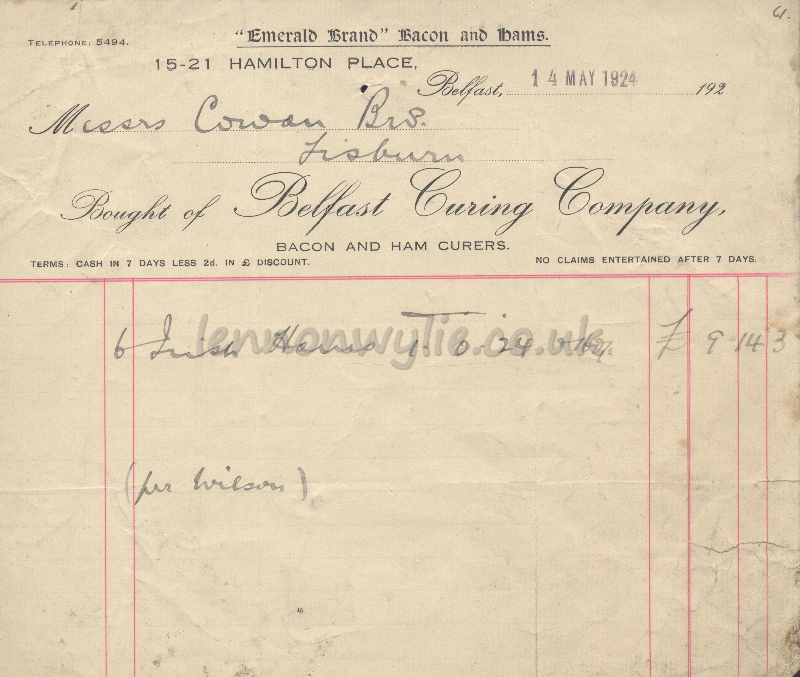 U.
"Emerald Brand" Bacon and Hams.
TELEPHONE: 5494.
15-21 HAMILTON PLACE,
Belfast, 14 MAY 1924 192
Messrs Cowan Bros.
Lisburn
Bought of Belfast Curing Company,
BACON AND HAM CURERS.
TERMS: CASH IN 7 DAYS LESS 2d. IN £ DISCOUNT. NO CLAIMS ENTERTAINED AFTER 7 DAYS.
lennonwylie.co.uk
6 Irish Hams 1 0 24 160/- £ 9 14 3
(per Wilson)